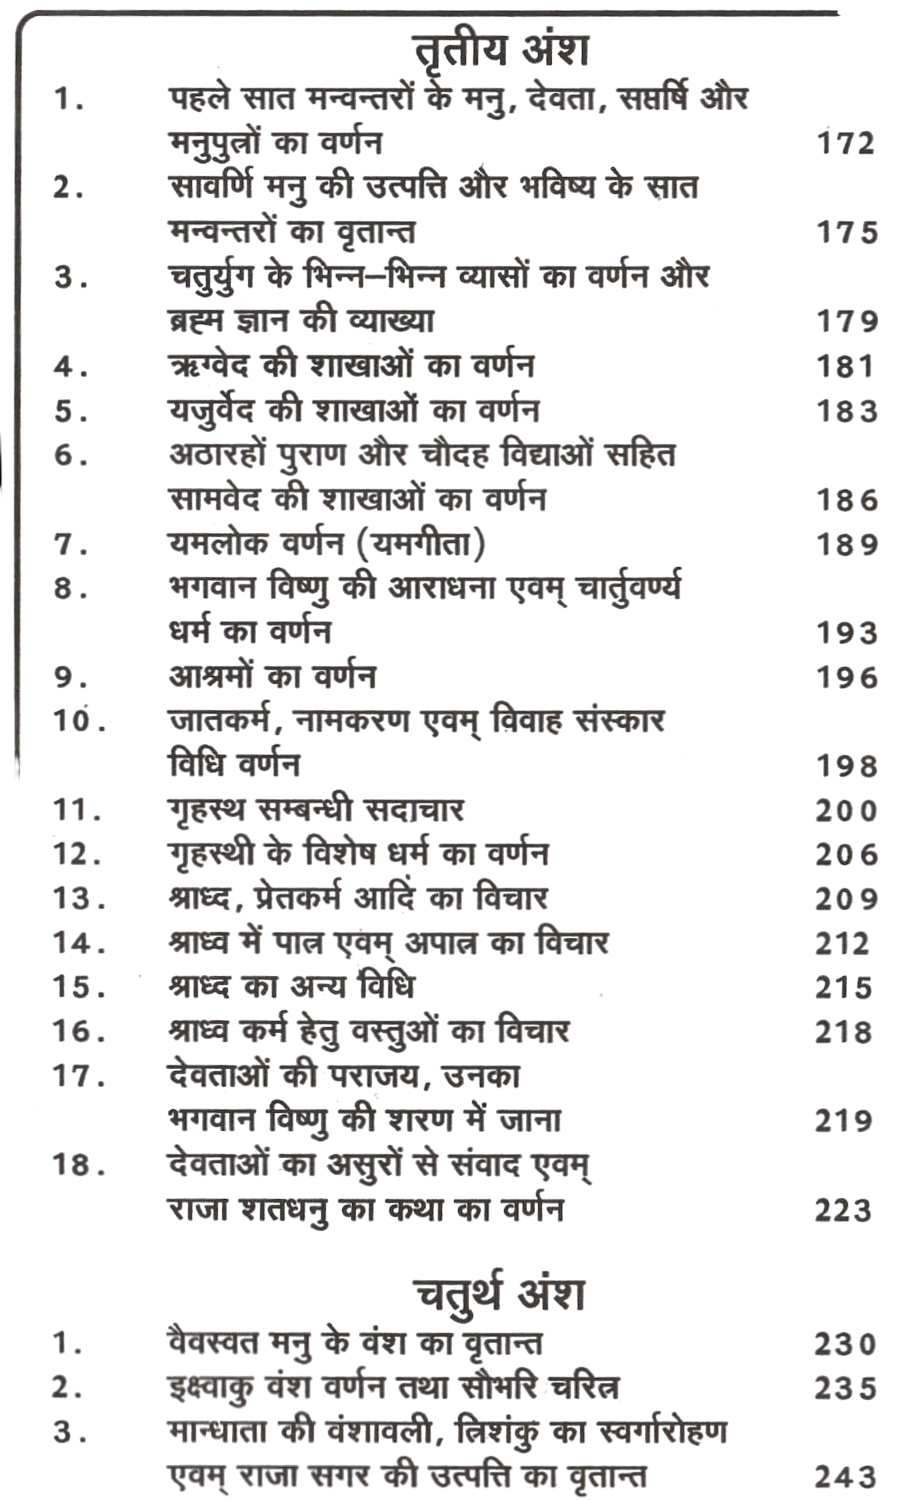 तृतीय अंश
1. पहले सात मन्वन्तरों के मनु, देवता, सप्तर्षि और
मनुपुत्रों का वर्णन 172
2. सावर्णि मनु की उत्पत्ति और भविष्य के सात
मन्वन्तरों का वृतान्त 175
3. चतुर्युग के भिन्न–भिन्न व्यासों का वर्णन और
ब्रह्म ज्ञान की व्याख्या 179
4. ऋग्वेद की शाखाओं का वर्णन 181
5. यजुर्वेद की शाखाओं का वर्णन 183
6. अठारहों पुराण और चौदह विद्याओं सहित
सामवेद की शाखाओं का वर्णन 186
7. यमलोक वर्णन (यमगीता) 189
8. भगवान विष्णु की आराधना एवम् चार्तुवर्ण्य
धर्म का वर्णन 193
9. आश्रमों का वर्णन 196
10. जातकर्म, नामकरण एवम् विवाह संस्कार
विधि वर्णन 198
11. गृहस्थ सम्बन्धी सदाचार 200
12. गृहस्थी के विशेष धर्म का वर्णन 206
13. श्राध्द, प्रेतकर्म आदि का विचार 209
14. श्राध्व में पात्र एवम् अपात्र का विचार 212
15. श्राध्द का अन्य विधि 215
16. श्राध्व कर्म हेतु वस्तुओं का विचार 218
17. देवताओं की पराजय, उनका
भगवान विष्णु की शरण में जाना 219
18. देवताओं का असुरों से संवाद एवम्
राजा शतधनु का कथा का वर्णन 223
चतुर्थ अंश
1. वैवस्वत मनु के वंश का वृतान्त 230
2. इक्ष्वाकु वंश वर्णन तथा सौभरि चरित्र 235
3. मान्धाता की वंशावली, त्रिशंकु का स्वर्गारोहण
एवम् राजा सगर की उत्पत्ति का वृतान्त 243